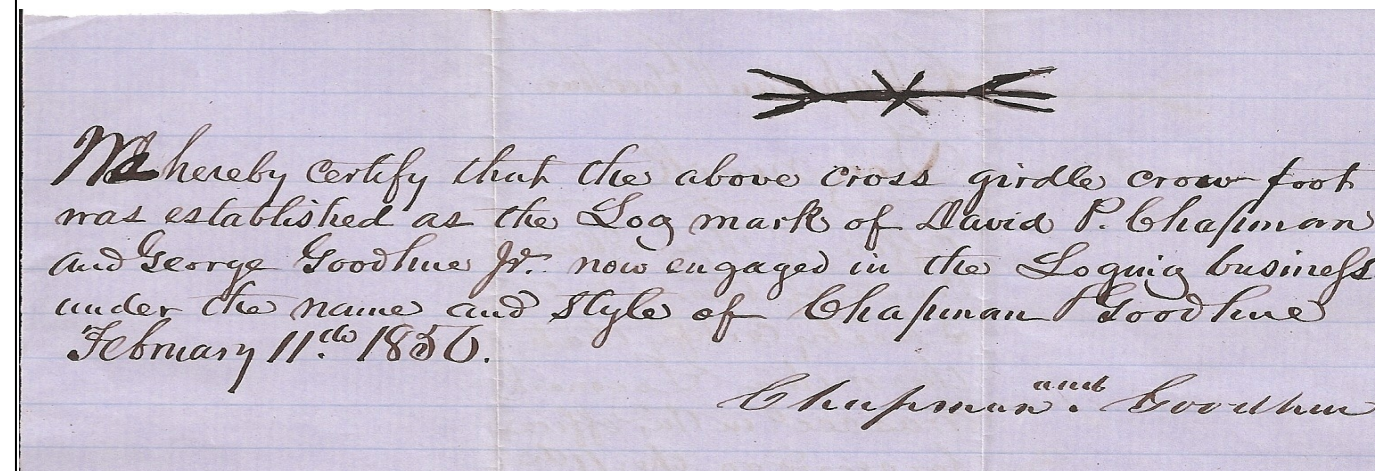 We hereby certify that the above cross girdle crow foot
was established as the Log mark of David P. Chapman
and George Goodhue Jr. now engaged in the Loguig business
under the name and style of Chapman Goodhue
February 11th 1856.
Chapman and Goodhue